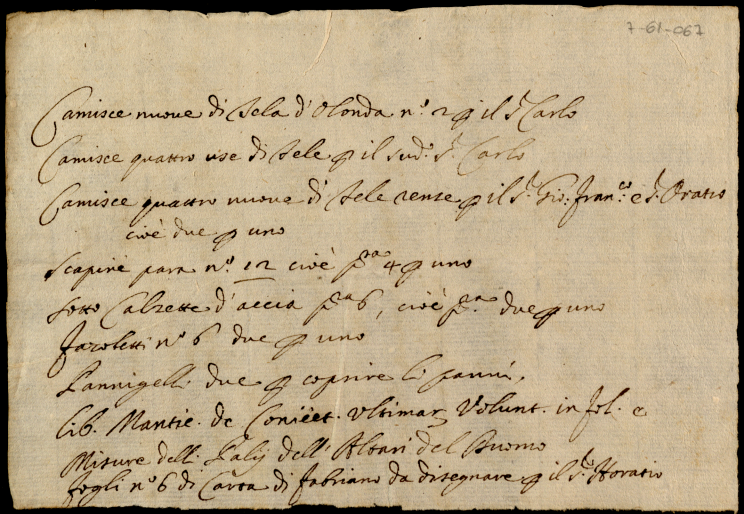 7-61-067
Camisce nuove di tela d'Olonda n.º 2 ꝑ il S.r Carlo
Camisce quattro use di tele ꝑ il sud.º S.r Carlo
Camisce quattro nuove di tele rense ꝑ il S.r Gio: Fran.co e S.r Oratio
cioè due ꝑ uno
Scapinè para n.º 12 cioè p.ra 4 ꝑ uno
Sotto Calzette d'accia p.ra 6, cioè p.ra due ꝑ uno
Fazoletti n.º 6 due ꝑ uno
Pannigelli due ꝑ coprire li panni,
Lib. Mantic. de Coniect. Ultimar. Volunt. in fol. e
Misure dell. Palij dell. Altari del Duomo
Fogli n.º 6 di Carta di Fabriano da disegnare ꝑ il S.r Horatio